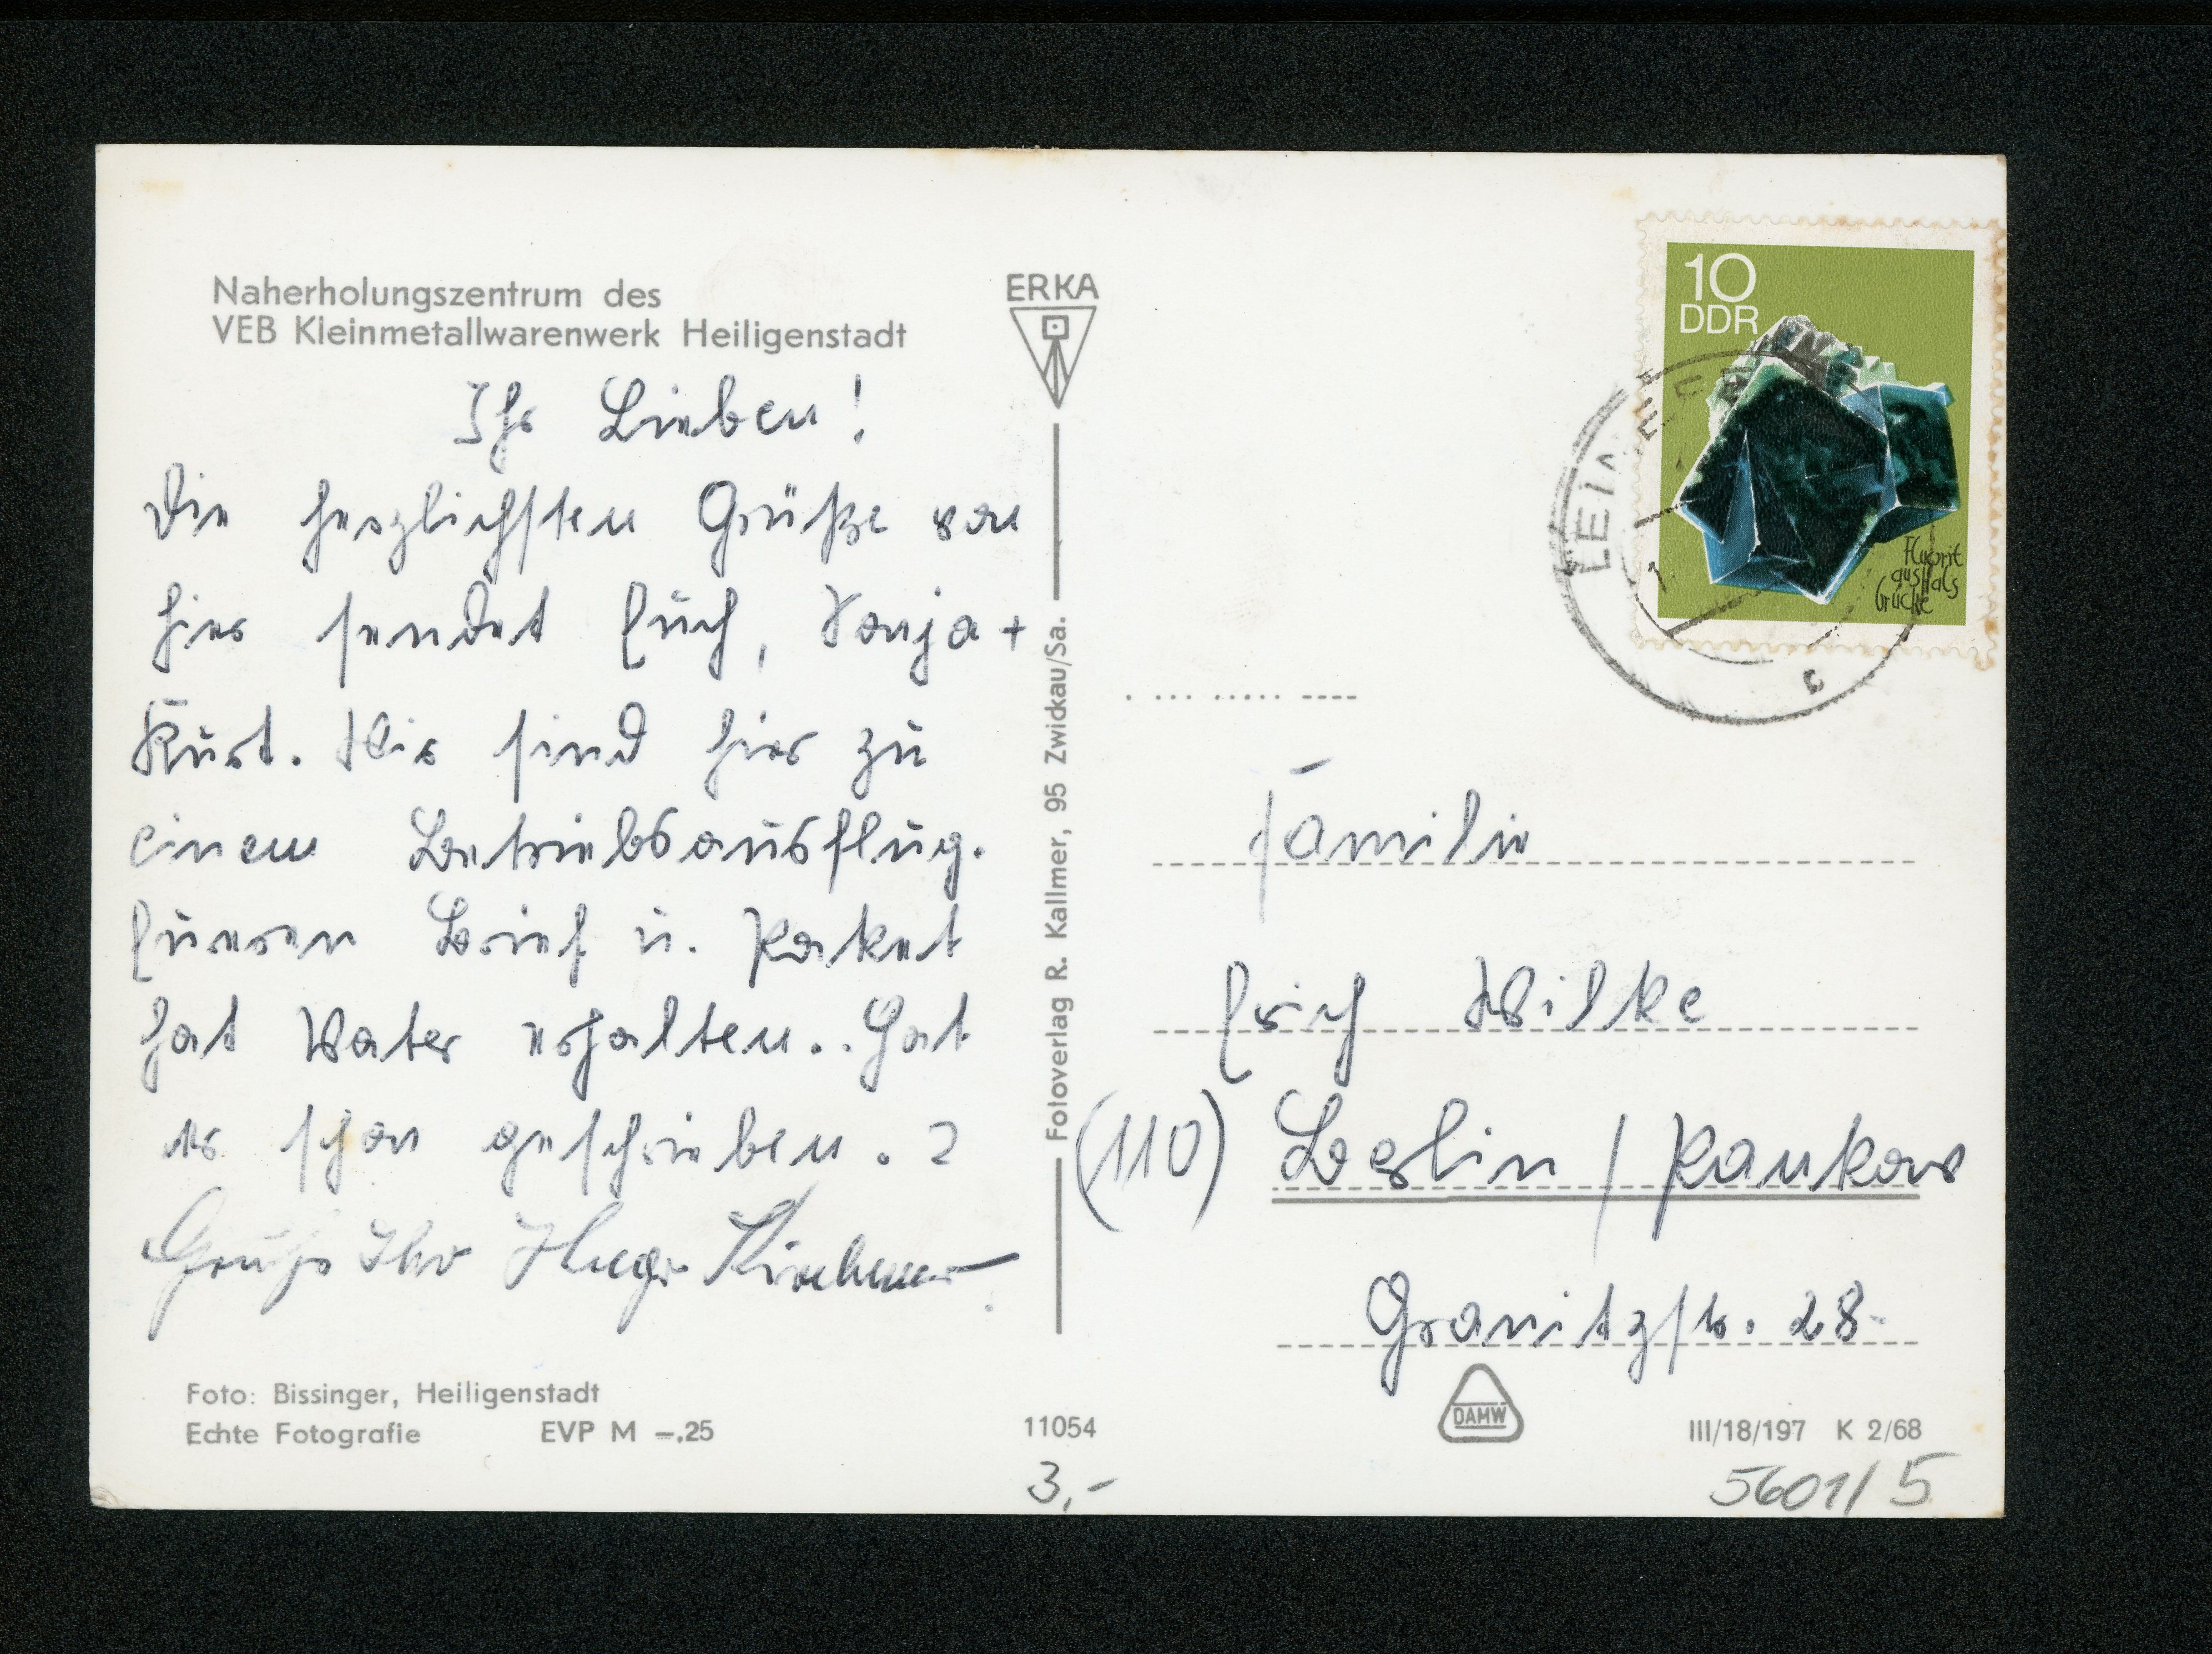 Naherholungszentrum des
VEB Kleinmetallwarenwerk Heiligenstadt
Ihr Lieben!
Die herzlichsten Grüße von
hier sendet Euch, Sonja +
Kurt. Wir sind hier zu
einem Betriebsausflug.
Eueren Brief u. Paket
hat Vater erhalten.. Hat
er schon geschrieben.?
Gruß Ihr Hugo
Foto: Bissinger, Heiligenstadt
Echte Fotografie EVP M –.25
ERKA
Fotoverlag R. Kallmer, 95 Zwickau/Sa.
11054
3,-
10
DDR
Fluorit
aus Hals
brücke
LEINEFE
c
Familie
Erich Wilke
(110) Berlin / Pankow
Granitzstr. 28-
DAMW
III/18/197 K 2/68
5601/5